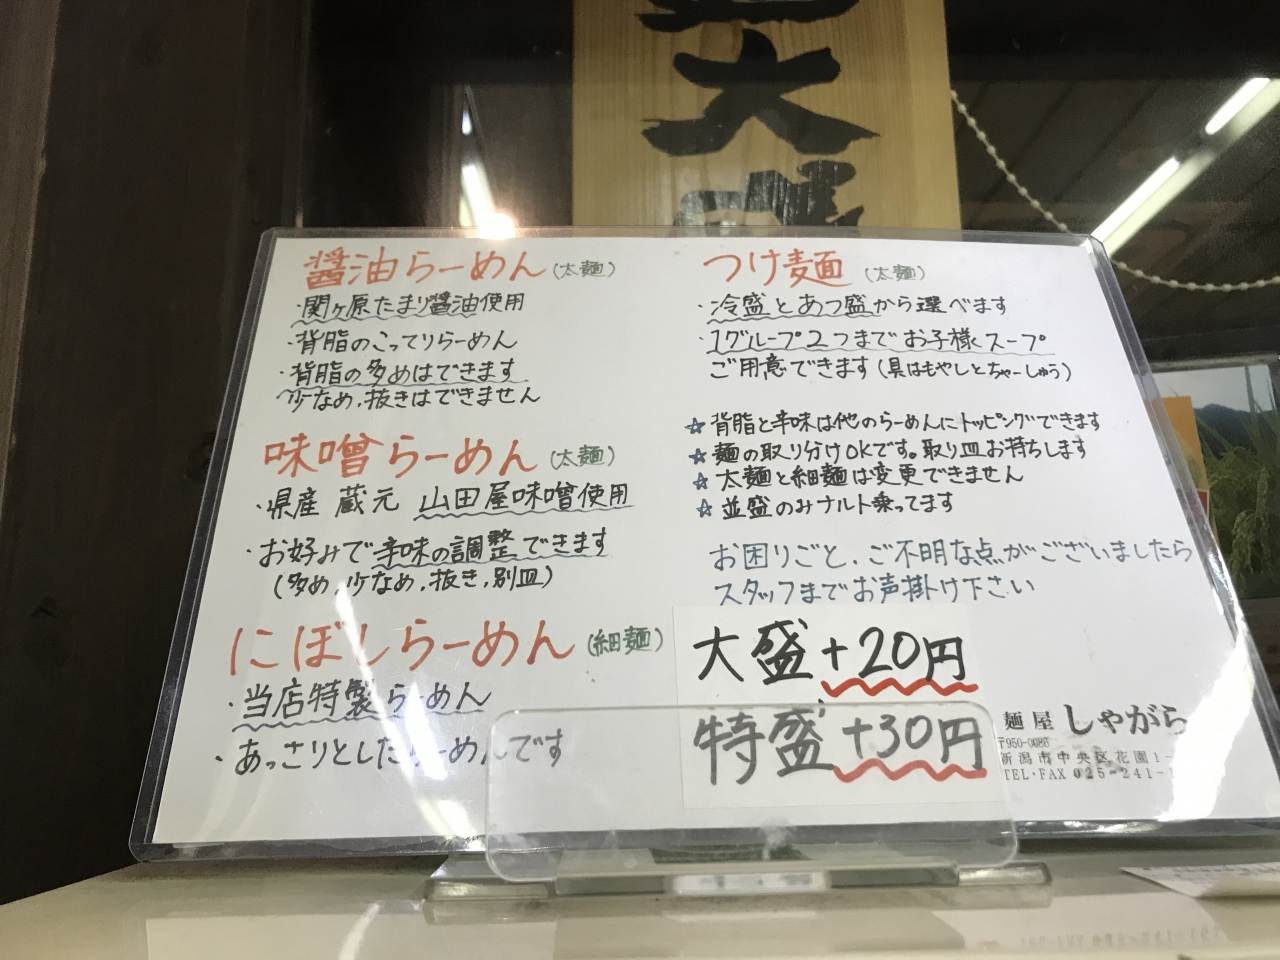 大
醤油らーめん(太麺)
・関ヶ原たまり醤油使用
・背脂のこってりらーめん
・背脂の多めはできます
少なめ、抜きはできません
味噌らーめん(太麺)
・県産 蔵元 山田屋味噌使用
・お好みで辛味の調整できます
(多め、少なめ、抜き、別皿)
にぼしらーめん(細麺)
・当店特製らーめん
・あっさりとしたらーめんです
つけ麺(太麺)
・冷盛とあつ盛から選べます
・1グループ2つまでお子様スープ
ご用意できます(具はもやしとちゃーしゅう)
☆背脂と辛味は他のらーめんにトッピングできます
☆麺の取り分けOKです。取り皿お持ちします
☆太麺と細麺は変更できません
☆並盛のみナルト乗ってます
お困りごと、ご不明な点がございましたら
スタッフまでお声掛け下さい
大盛+20円
特盛+30円
麺屋しゃがら
〒950-0086
新潟市中央区花園1-
TEL・FAX 025-241-1